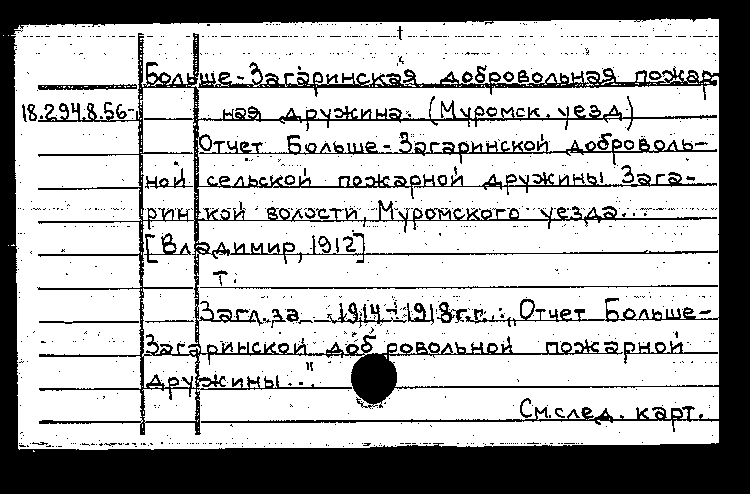 Больше-Загаринская добровольная пожар-
18.294.8.56-1 ная дружина. (Муромск. уезд)
Отчет Больше-Загаринской доброволь-
ной сельской пожарной дружины Зага-
ринской волости, Муромского уезда...
[Владимир, 1912]
т.
Загл. за 1914-1918 г.г.: „Отчет Больше-
Загаринской добровольной пожарной
дружины..."
См. след. карт.